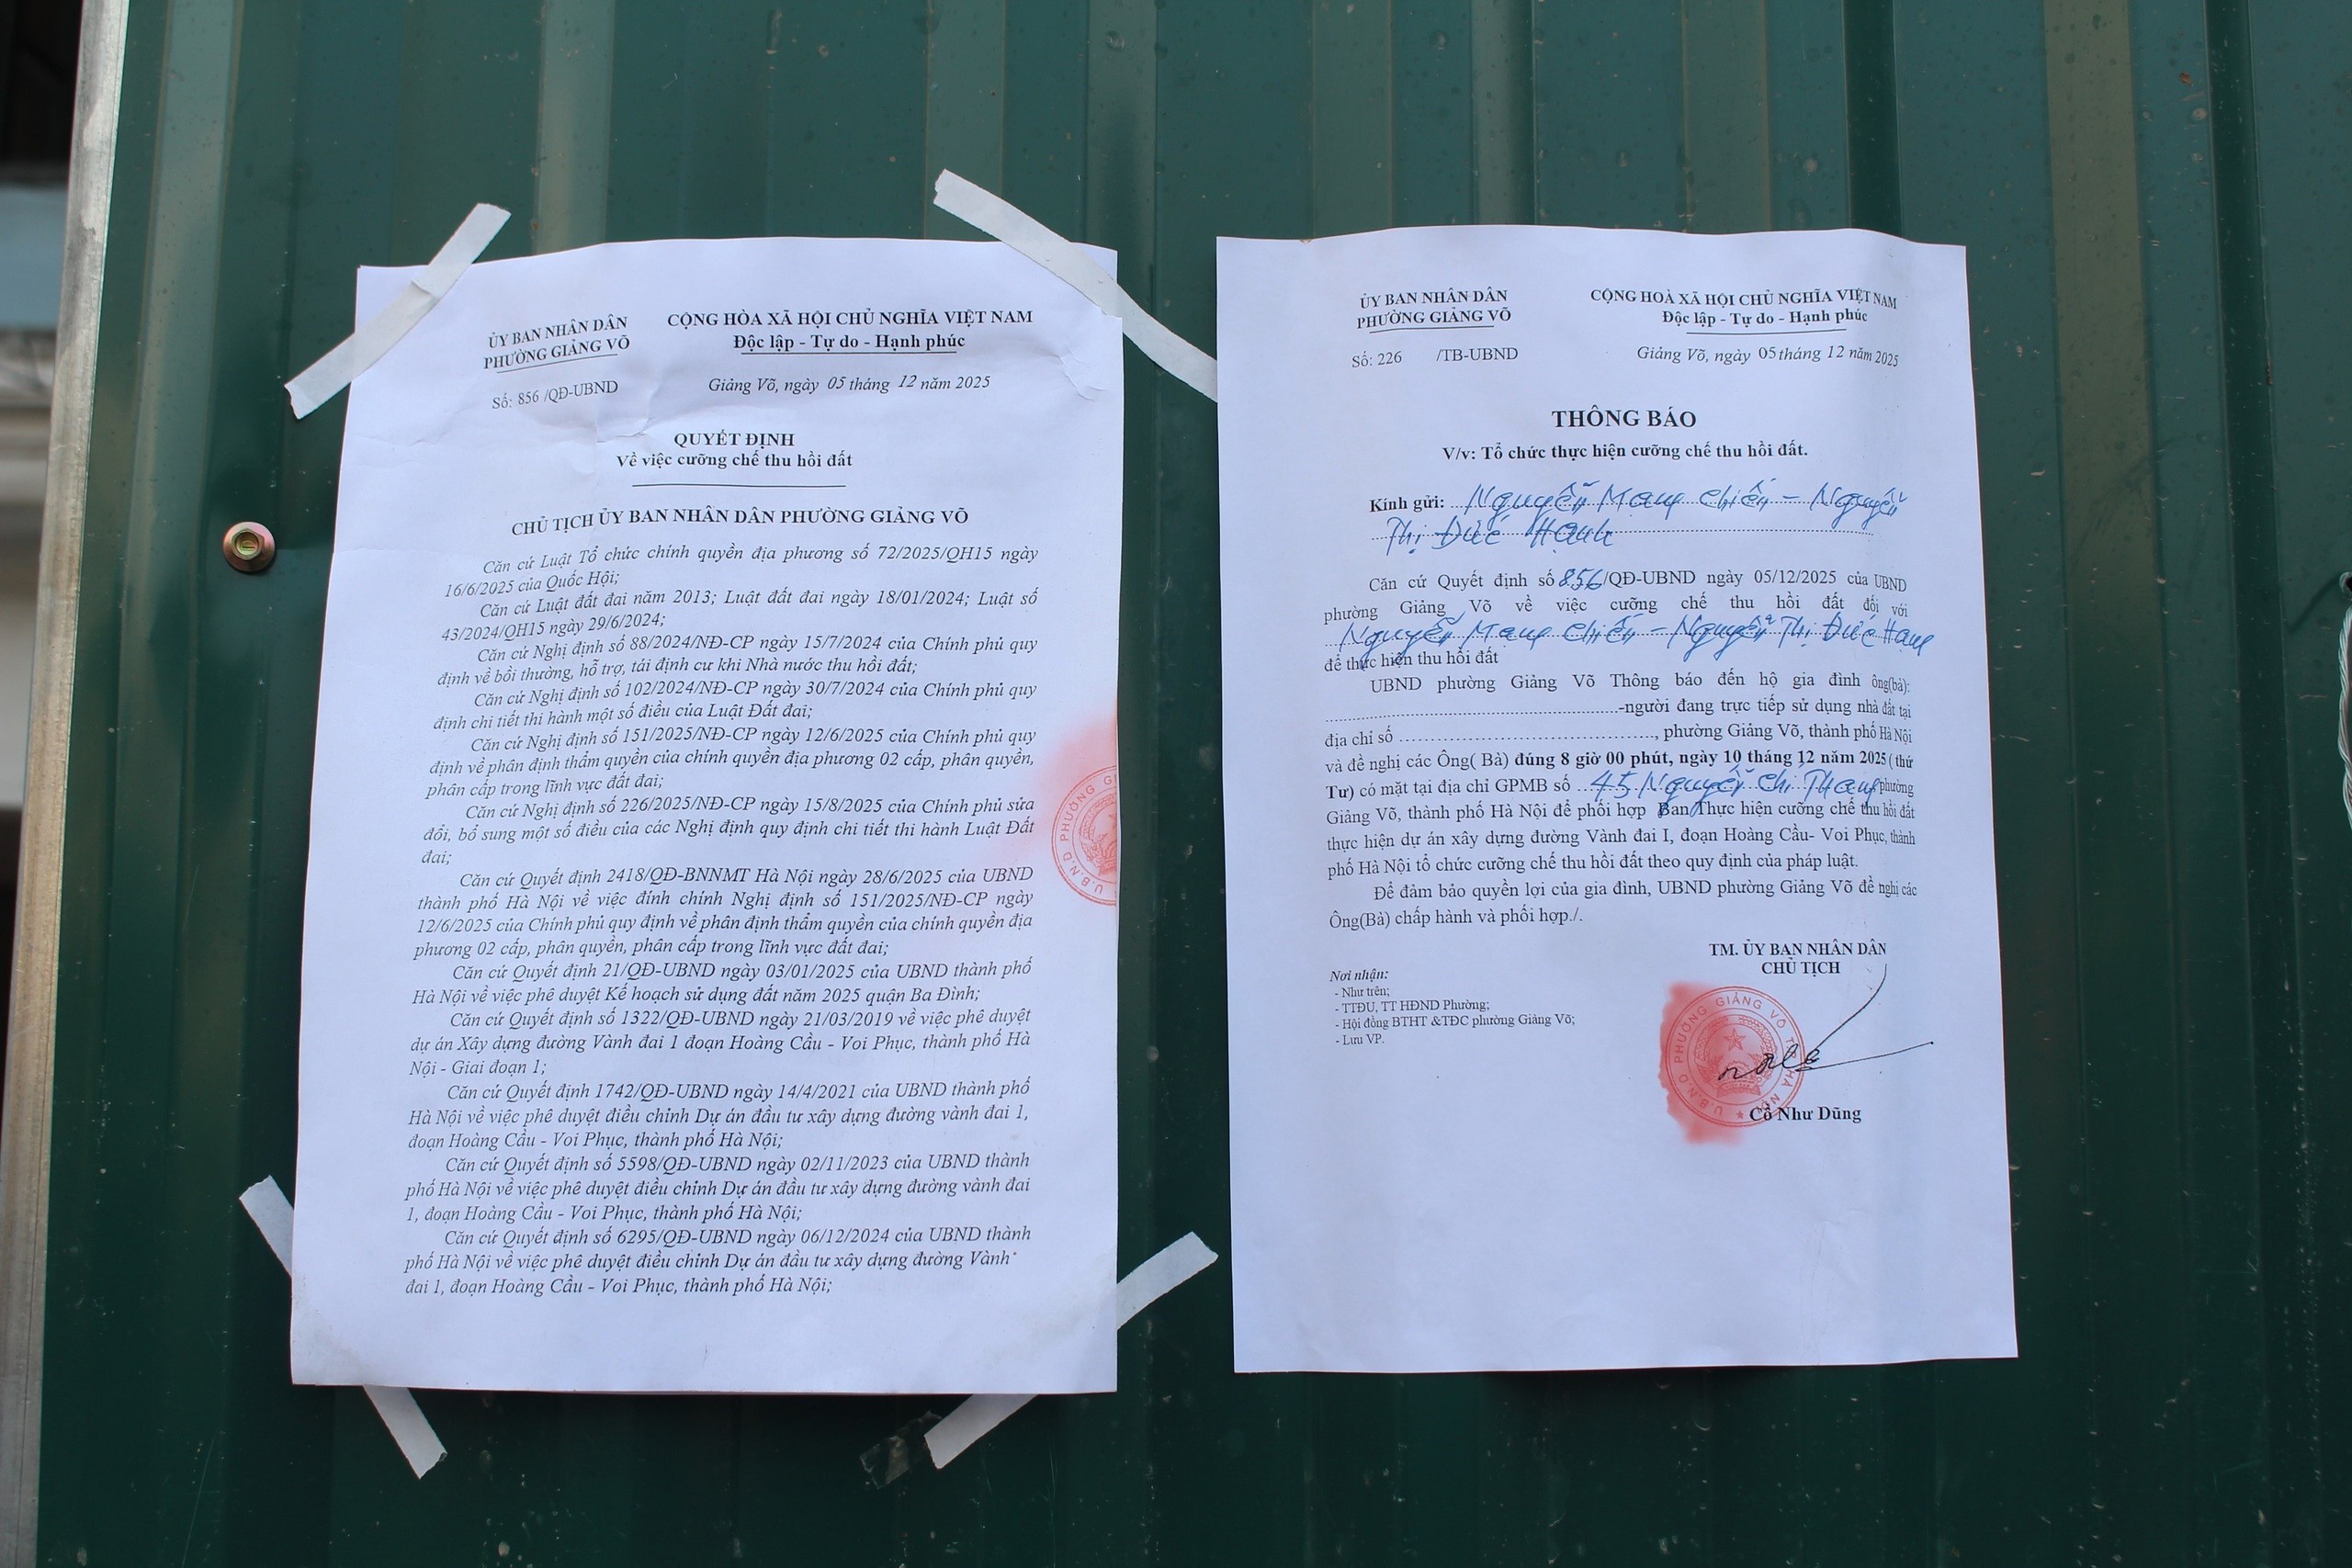 ỦY BAN NHÂN DÂN
PHƯỜNG GIẢNG VÕ
Số: 856 /QĐ-UBND
CỘNG HÒA XÃ HỘI CHỦ NGHĨA VIỆT NAM
Độc lập - Tự do - Hạnh phúc
Giảng Võ, ngày 05 tháng 12 năm 2025
QUYẾT ĐỊNH
Về việc cưỡng chế thu hồi đất
CHỦ TỊCH ỦY BAN NHÂN DÂN PHƯỜNG GIẢNG VÕ
Căn cứ Luật Tổ chức chính quyền địa phương số 72/2025/QH15 ngày
16/6/2025 của Quốc Hội;
Căn cứ Luật đất đai năm 2013; Luật đất đai ngày 18/01/2024; Luật số
43/2024/QH15 ngày 29/6/2024;
Căn cứ Nghị định số 88/2024/NĐ-CP ngày 15/7/2024 của Chính phủ quy
định về bồi thường, hỗ trợ, tái định cư khi Nhà nước thu hồi đất;
Căn cứ Nghị định số 102/2024/NĐ-CP ngày 30/7/2024 của Chính phủ quy
định chi tiết thi hành một số điều của Luật Đất đai;
Căn cứ Nghị định số 151/2025/NĐ-CP ngày 12/6/2025 của Chính phủ quy
định về phân định thẩm quyền của chính quyền địa phương 02 cấp, phân quyền,
phân cấp trong lĩnh vực đất đai;
Căn cứ Nghị định số 226/2025/NĐ-CP ngày 15/8/2025 của Chính phủ sửa
đổi, bổ sung một số điều của các Nghị định quy định chi tiết thi hành Luật Đất
đai;
Căn cứ Quyết định 2418/QĐ-BNNMT Hà Nội ngày 28/6/2025 của UBND
thành phố Hà Nội về việc đính chính Nghị định số 151/2025/NĐ-CP ngày
12/6/2025 của Chính phủ quy định về phân định thẩm quyền của chính quyền địa
phương 02 cấp, phân quyền, phân cấp trong lĩnh vực đất đai;
Căn cứ Quyết định 21/QĐ-UBND ngày 03/01/2025 của UBND thành phố
Hà Nội về việc phê duyệt Kế hoạch sử dụng đất năm 2025 quận Ba Đình;
Căn cứ Quyết định số 1322/QĐ-UBND ngày 21/03/2019 về việc phê duyệt
dự án Xây dựng đường Vành đai 1 đoạn Hoàng Cầu - Voi Phục, thành phố Hà
Nội - Giai đoạn 1;
Căn cứ Quyết định 1742/QĐ-UBND ngày 14/4/2021 của UBND thành phố
Hà Nội về việc phê duyệt điều chỉnh Dự án đầu tư xây dựng đường vành đai 1,
đoạn Hoàng Cầu - Voi Phục, thành phố Hà Nội;
Căn cứ Quyết định số 5598/QĐ-UBND ngày 02/11/2023 của UBND thành
phố Hà Nội về việc phê duyệt điều chỉnh Dự án đầu tư xây dựng đường vành đai
1, đoạn Hoàng Cầu - Voi Phục, thành phố Hà Nội;
Căn cứ Quyết định số 6295/QĐ-UBND ngày 06/12/2024 của UBND thành
phố Hà Nội về việc phê duyệt điều chỉnh Dự án đầu tư xây dựng đường Vành
đai 1, đoạn Hoàng Cầu - Voi Phục, thành phố Hà Nội;
U.B.N.D PHƯỜNG
ỦY BAN NHÂN DÂN
PHƯỜNG GIẢNG VÕ
Số: 226 /TB-UBND
CỘNG HOÀ XÃ HỘI CHỦ NGHĨA VIỆT NAM
Độc lập - Tự do - Hạnh phúc
Giảng Võ, ngày 05 tháng 12 năm 2025
THÔNG BÁO
V/v: Tổ chức thực hiện cưỡng chế thu hồi đất.
Kính gửi: Nguyễn Mạnh Chiến - Nguyễn
Thị Đức Hạnh
Căn cứ Quyết định số 856/QĐ-UBND ngày 05/12/2025 của UBND
phường Giảng Võ về việc cưỡng chế thu hồi đất đối với
Nguyễn Mạnh Chiến - Nguyễn Thị Đức Hạnh
để thực hiện thu hồi đất
UBND phường Giảng Võ Thông báo đến hộ gia đình ông(bà):
.....-người đang trực tiếp sử dụng nhà đất tại
địa chỉ số ....., phường Giảng Võ, thành phố Hà Nội
và đề nghị các Ông( Bà) đúng 8 giờ 00 phút, ngày 10 tháng 12 năm 2025 ( thứ
Tư) có mặt tại địa chỉ GPMB số 45 Nguyễn Chí Thanh phường
Giảng Võ, thành phố Hà Nội để phối hợp Ban Thực hiện cưỡng chế thu hồi đất
thực hiện dự án xây dựng đường Vành đai I, đoạn Hoàng Cầu- Voi Phục, thành
phố Hà Nội tổ chức cưỡng chế thu hồi đất theo quy định của pháp luật.
Để đảm bảo quyền lợi của gia đình, UBND phường Giảng Võ đề nghị các
Ông(Bà) chấp hành và phối hợp./.
Nơi nhận:
- Như trên;
- TTĐU, TT HĐND Phường;
- Hội đồng BTHT &TĐC phường Giảng Võ;
- Lưu VP.
TM. ỦY BAN NHÂN DÂN
CHỦ TỊCH
U.B.N.D PHƯỜNG GIẢNG VÕ TP. HÀ NỘI
Cồ Như Dũng